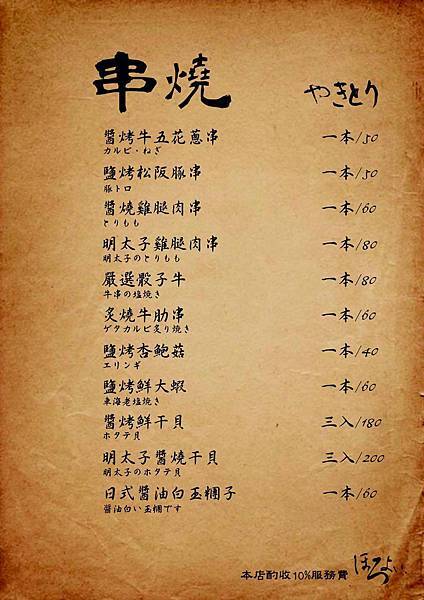 串燒 やきとり
醬烤牛五花蔥串 一本/50
カルビ・ねぎ
鹽烤松阪豚串 一本/50
豚トロ
醬燒雞腿肉串 一本/60
とりもも
明太子雞腿肉串 一本/80
明太子のとりもも
嚴選骰子牛 一本/80
牛串の塩焼き
炙燒牛肋串 一本/60
ゲタカルビ炙り焼き
鹽烤杏鮑菇 一本/40
エリンギ
鹽烤鮮大蝦 一本/60
東海老塩焼き
醬烤鮮干貝 三入/180
ホタテ貝
明太子醬燒干貝 三入/200
明太子のホタテ貝
日式醬油白玉糰子 一本/60
醬油白い玉糰です
本店酌收10%服務費 ほろよい